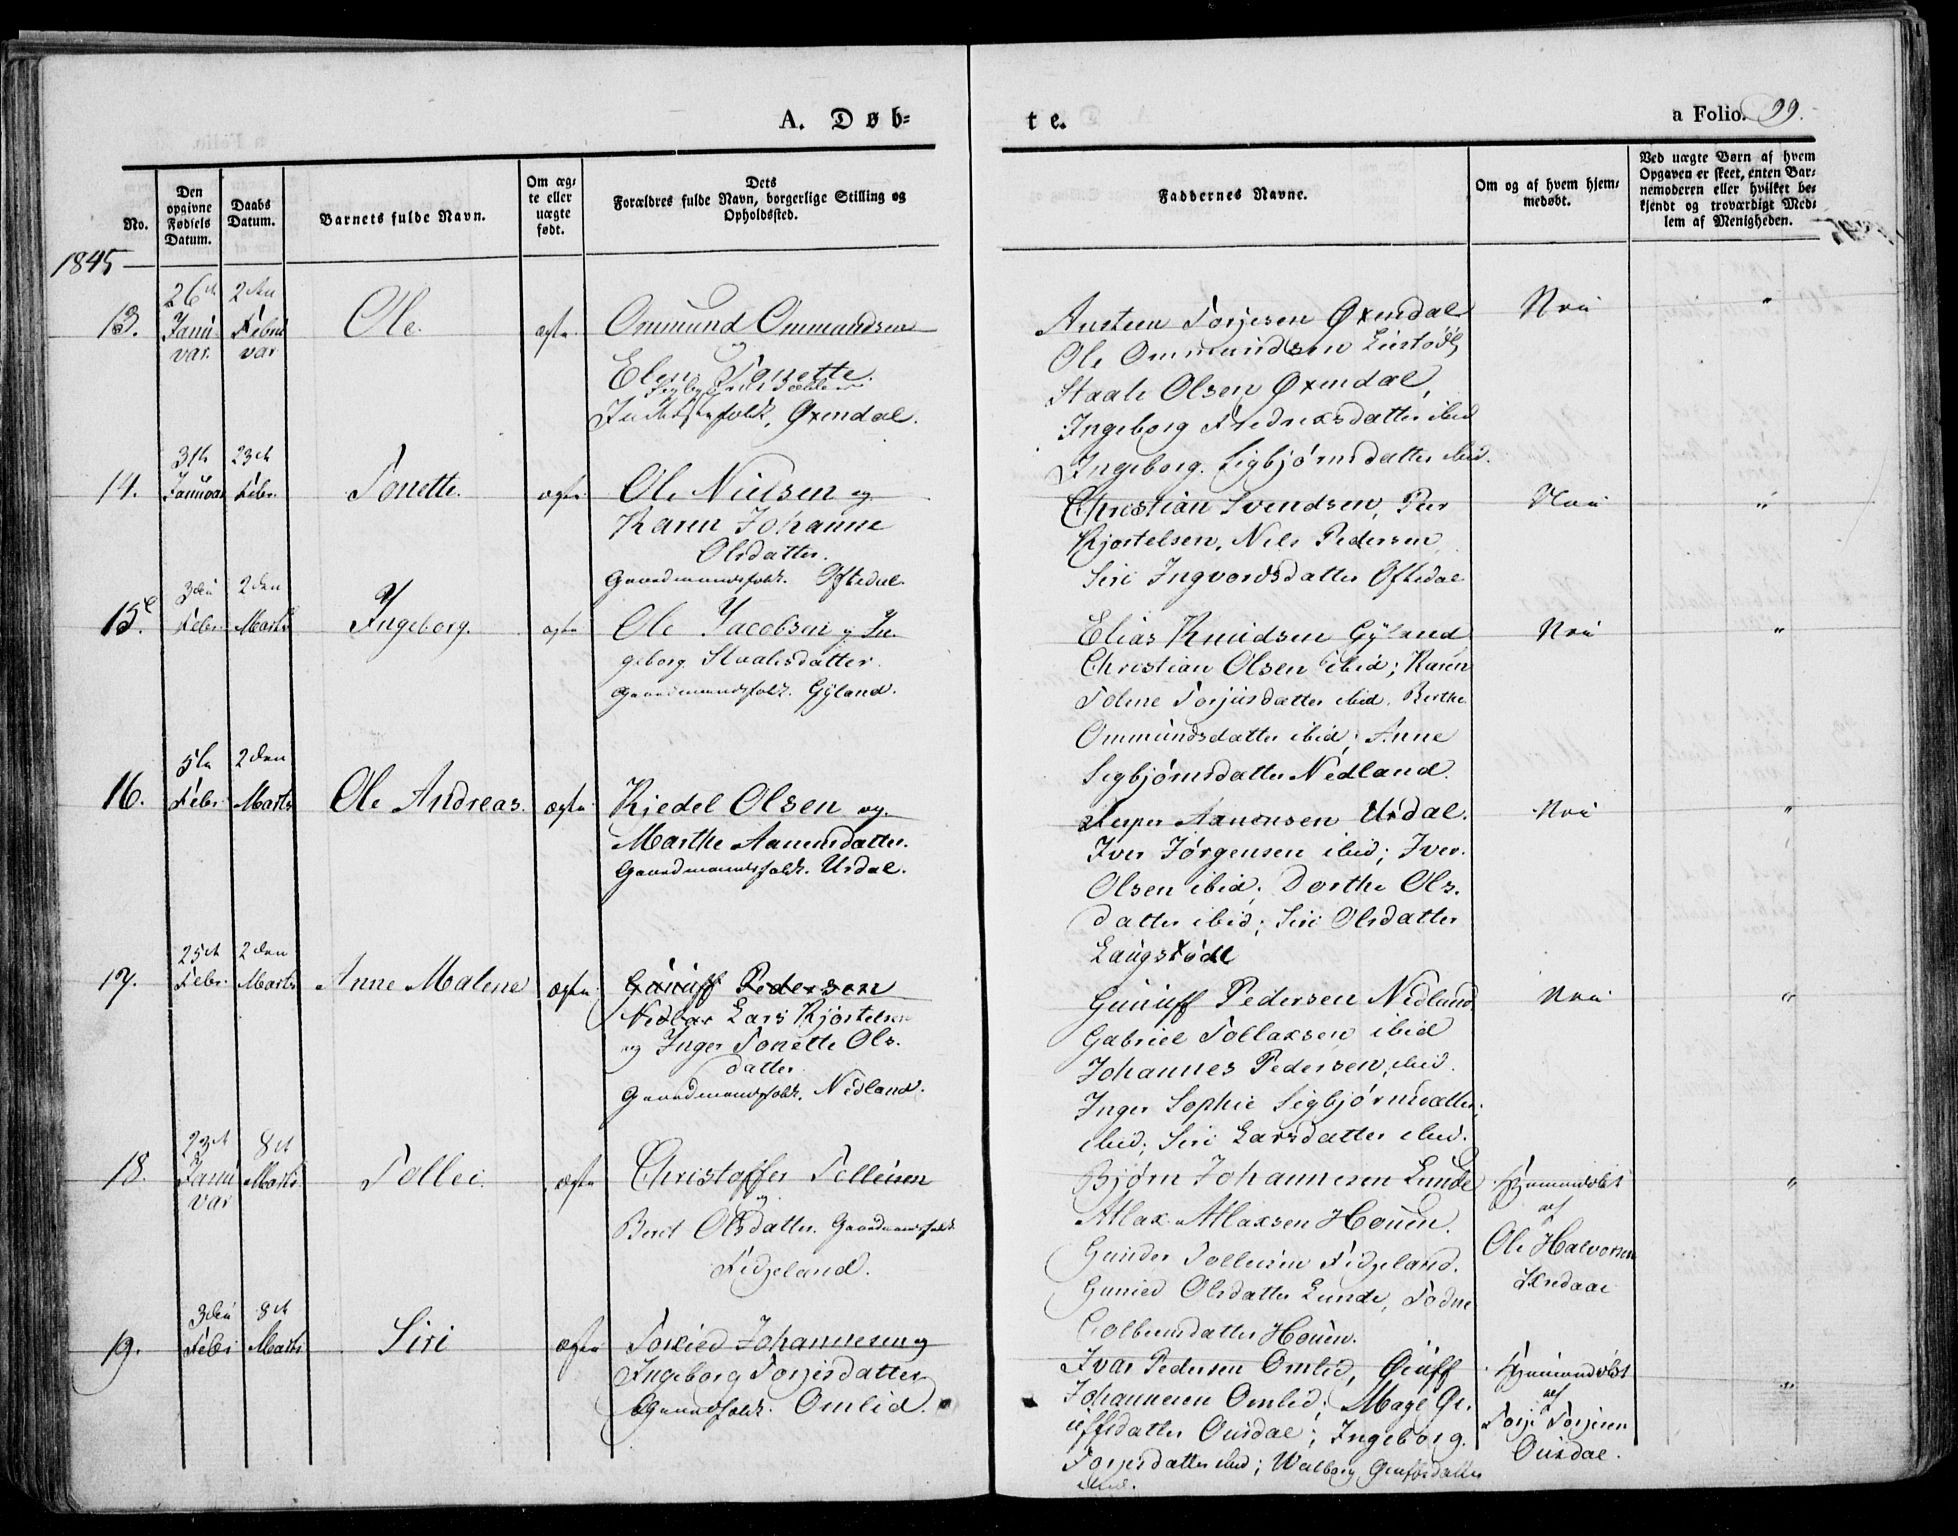 A. Døb-
te.
a Folio. 99.
No.
Den opgivne Fødsels Datum.
Daabs Datum.
Barnets fulde Navn.
Om æg-
te eller
uægte
født.
Dets
Forældres fulde Navn, borgerlige Stilling og
Opholdssted.
Faddernes Navne.
Om og af hvem hjem-
medøbt.
Ved uægte Børn af hvem
Opgaven er skeet, enten Bar-
nemoderen eller hvilket be-
kjendt og troværdigt Med-
lem af Menigheden.
1845
13.
26de
Janu
var.
2den
Februar
Ole.
ægte
Ommund Ommundsen
Elen Tonette
Sigbjørnsdatter
Inderstfolk, Øxendal.
Austeen Torjesen Øxendal
Ole Ommundsen Liestøel,
Staale Olsen Øxendal,
Ingeborg Fredriksdatter ibid
Ingeborg Sigbjørnsdatter ibid.
Nei
"
14.
31te
Januar
23de
Febr.
Tonette.
ægte
Ole Nielsen og
Karen Johanne
Olsdatter.
Gaardmandsfolk. Oftedal.
Christian Svendsen, Peer
Kjøstelsen, Nils Pedersen
Siri Ingvordsdatter Oftedal
Nei
"
15.
3die
Febr.
2den
Marts
Ingeborg.
ægte
Ole Jacobsen og In-
geborg Staalesdatter.
Gaardmandsfolk. Gyland.
Elias Knudsen Gyland
Christian Olsen ibid; Karen
Tolene Torjusdatter ibid. Berthe
Ommundsdatter ibid; Anne
Sigbjørnsdatter Nedland.
Nei
"
16.
5te
Febr.
2den
Marts
Ole Andreas.
ægte
Kiedel Olsen og
Marthe Aanensdatter.
Gaardmandsfolk. Urdal.
Aanensen Urdal.
Iver Jørgensen ibid; Iver
Olsen ibid; Dorthe Ols-
datter ibid; Siri Olsdatter
Laugstødl
Nei
"
17.
25de
Febr.
2den
Marts
Anne Malene
ægte
Gunuff Pedersen
Nedlan Lars Kjøstelsen
og Inger Tonette Ols-
datter
Gaardmandsfolk. Nedland.
Gunuff Pedersen Nedland
Gabriel Tollaksen ibid
Johannes Pedersen, ibid.
Inger Sophie Sigbjørnsdatter,
ibid; Siri Larsdatter ibid.
Nei
"
18.
23de
Janu
var
8de
Marts
Tollei.
ægte
Christoffer Tolleisen
og
Berit Olsdatter. Gaardmandsfolk
Fidjeland.
Bjørn Johannesen Lunde
Atlax Atlaxsen Houen.
Gunder Tolleisen Fidjeland.
Gunild Olsdatter Lunde, Todne
Houen.
Hjemmedøbt
af
Ole Halvorsen
"
19.
3die
Febr
8de
Marts
Siri
ægte
Torkied Johannesen og
Ingeborg Torjesdatter
Gaardfolk. Omlid.
Ivar Pedersen Omlid, Øiuff
Johannesen Omlid; Mage Øi-
uffsdatter Ousdal; Ingeborg
Torjesdatter ibid; Walborg Øiuffsdatter
ibid.
Hjemmedøbt
af
Torje Torjesen
Ousdal.
"